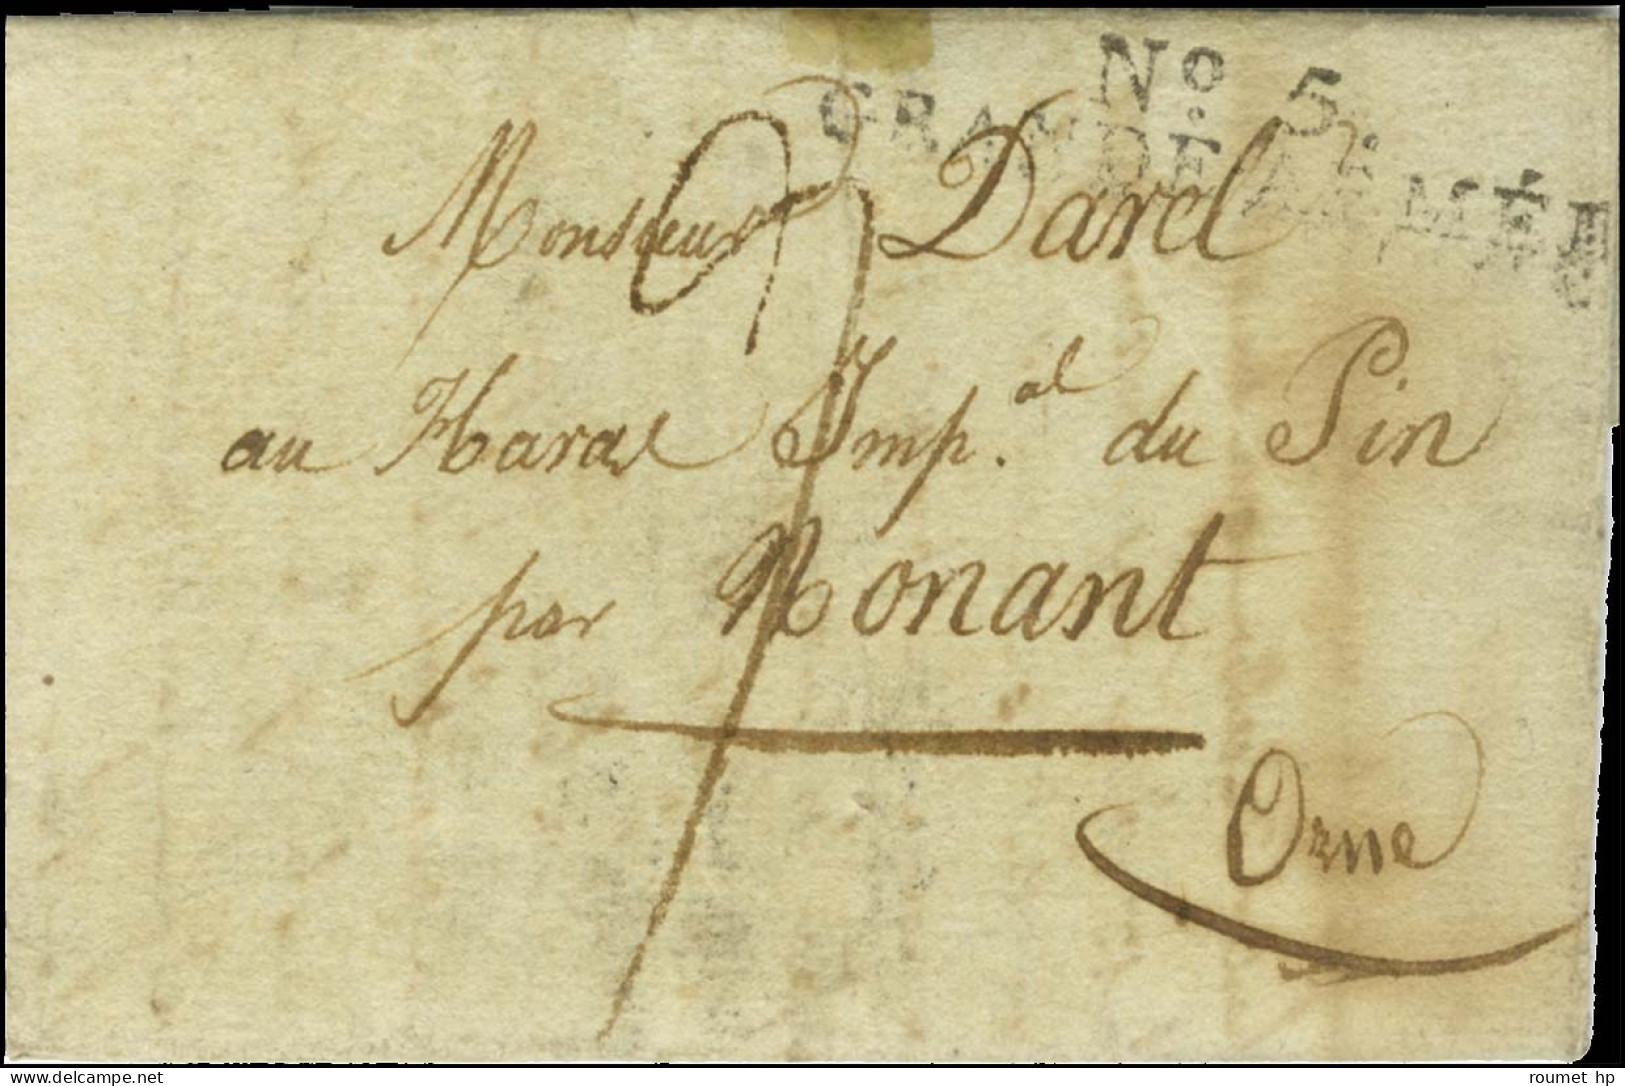 No. 5.
GRANDE ARMÉE
Monsieur Darel
au Haras Imp.al du Pin
par Nonant
Orne
www.delcampe.net
roumet_hp